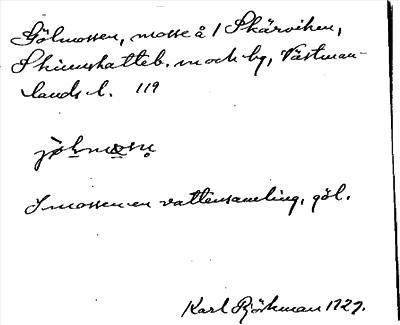 Gölmossen, mosse å 1 Skärviken,
Skinnskatteb. sn och bg, Västman-
lands l. 119
jö̀lmo̱sn̥
I mossen en vattensamling, göl.
Karl Björkman 1927.